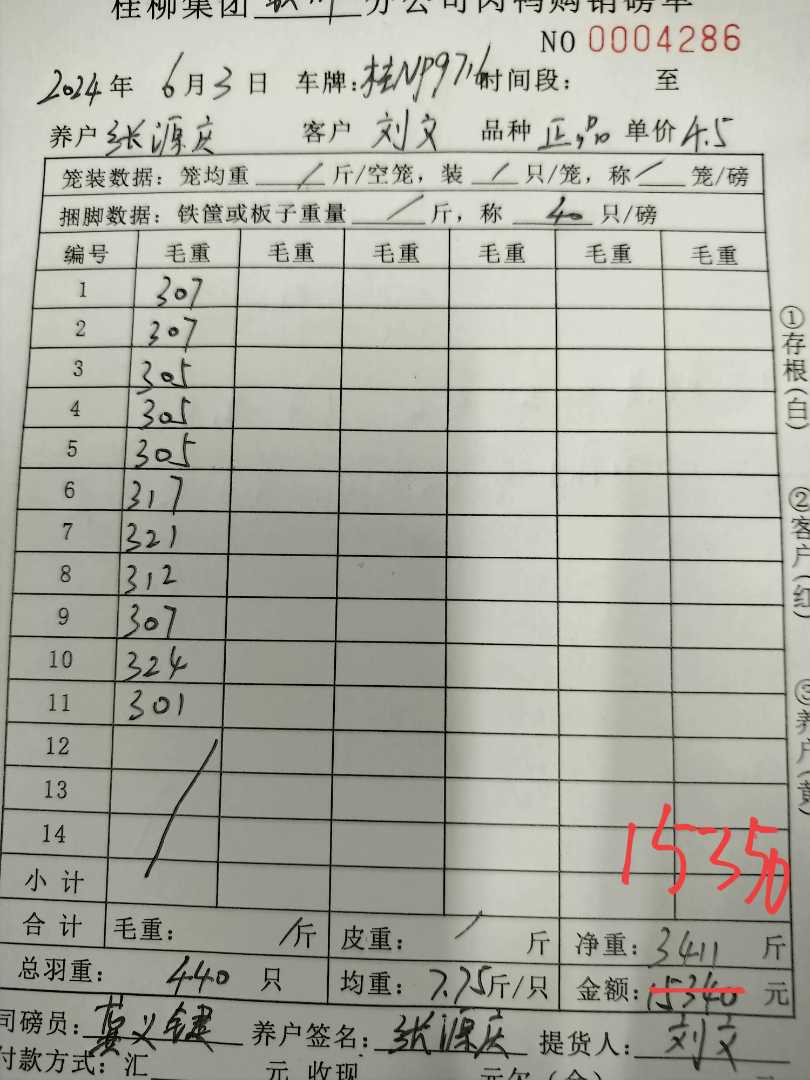 桂柳集团 分公司肉鸭购销磅单
NO 0004286
2024年 6月3日 车牌:桂NP9716 时间段: 至
养户 张源庆 客户 刘文 品种 正品 单价 4.5
笼装数据: 笼均重 / 斤/空笼, 装 / 只/笼, 称 / 笼/磅
捆脚数据: 铁筐或板子重量 / 斤, 称 40 只/磅
编号 毛重 毛重 毛重 毛重 毛重 毛重
1 307
2 307
3 305
4 305
5 305
6 317
7 321
8 312
9 307
10 324
11 301
12
13
14
15350
小计
合计 毛重: / 斤 皮重: / 斤 净重: 3411 斤
总羽重: 440 只 均重: 7.75斤/只 金额: 15340 元
司磅员: 莫义健 养户签名: 张源庆 提货人: 刘文
付款方式: 汇 元 收现 元欠(合)
①存根(白)
②客户(红)
③养户(黄)